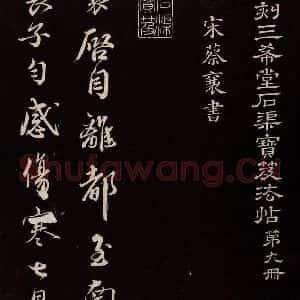 刻三希堂石渠寶笈法帖 第九冊
宋蔡襄書
石渠
寶笈
襄啓自離都至南
長子勻感傷寒七日
Shufawang.Cn